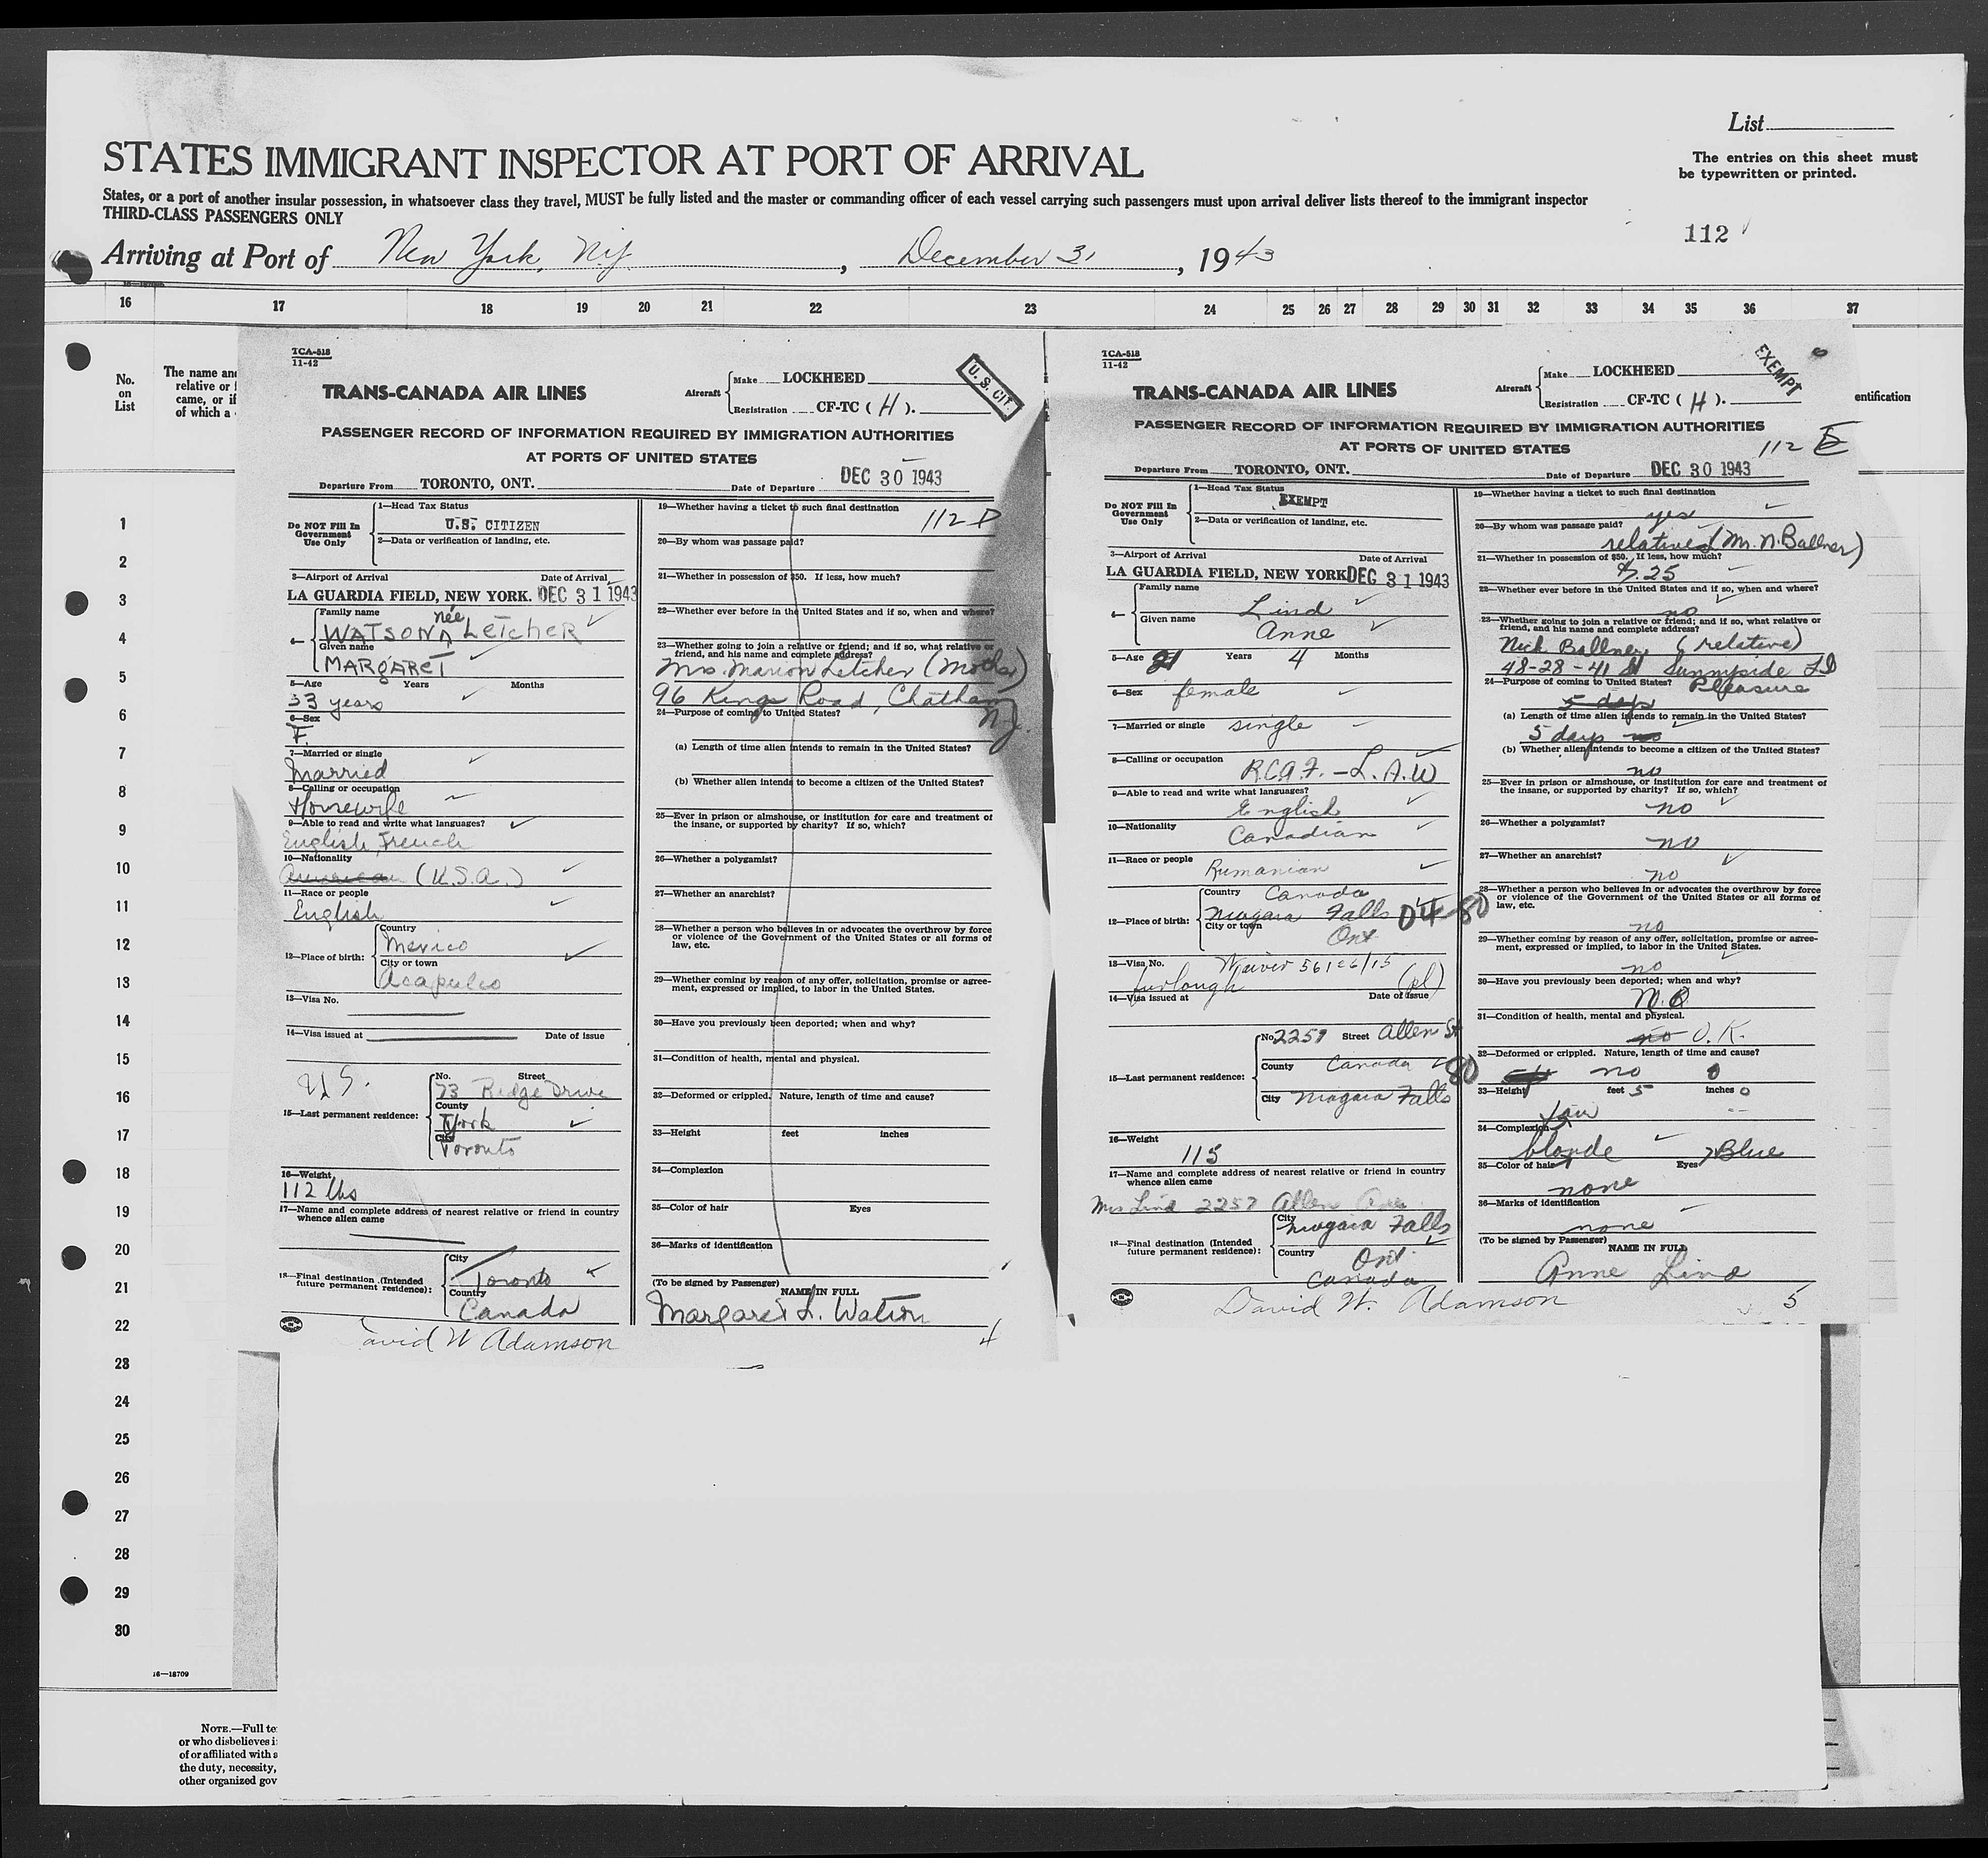 List
STATES IMMIGRANT INSPECTOR AT PORT OF ARRIVAL
The entries on this sheet must
be typewritten or printed.
States, or a port of another insular possession, in whatsoever class they travel, MUST be fully listed and the master or commanding officer of each vessel carrying such passengers must upon arrival deliver lists thereof to the immigrant inspector
THIRD-CLASS PASSENGERS ONLY
112
Arriving at Port of New York, N.Y. , December 31 , 1943
16 17 18 19 20 21 22 23 24 25 26 27 28 29 30 31 32 33 34 35 36 37
No.
on
List
The name and
relative or
came, or if
of which a
entification
1
2
3
4
5
6
7
8
9
10
11
12
13
14
15
16
17
18
19
20
21
22
23
24
25
26
27
28
29
30
16—18709
NOTE.—Full te
or who disbelieves i
of or affiliated with a
the duty, necessity,
other organized gov
TCA-518
11-42
TRANS-CANADA AIR LINES
Aircraft
Make LOCKHEED
Registration CF-TC ( H ).
U. S. CIT.
PASSENGER RECORD OF INFORMATION REQUIRED BY IMMIGRATION AUTHORITIES
AT PORTS OF UNITED STATES
Departure From TORONTO, ONT. Date of Departure DEC 30 1943
Do NOT Fill In
Government
Use Only
1—Head Tax Status
U.S. CITIZEN
2—Data or verification of landing, etc.
3—Airport of Arrival Date of Arrival
LA GUARDIA FIELD, NEW YORK. DEC 31 1943
4— Family name
WATSON née LETCHER
Given name
MARGARET
5—Age Years Months
33 years
6—Sex
F.
7—Married or single
Married
8—Calling or occupation
Housewife
9—Able to read and write what languages?
English, French
10—Nationality
American (U.S.A.)
11—Race or people
English
12—Place of birth: Country
Mexico
City or town
Acapulco
13—Visa No.
14—Visa issued at Date of issue
U.S.
15—Last permanent residence:
No. Street
73 Ridge Drive
County
York
City
Toronto
16—Weight
112 lbs
17—Name and complete address of nearest relative or friend in country
whence alien came
18—Final destination (Intended
future permanent residence):
City
Toronto
Country
Canada
David W Adamson
19—Whether having a ticket to such final destination
112 D
20—By whom was passage paid?
21—Whether in possession of $50. If less, how much?
22—Whether ever before in the United States and if so, when and where?
23—Whether going to join a relative or friend; and if so, what relative or
friend, and his name and complete address?
Mrs. Marion Letcher (Mother)
96 Kings Road, Chatham
N.J.
24—Purpose of coming to United States?
(a) Length of time alien intends to remain in the United States?
(b) Whether alien intends to become a citizen of the United States?
25—Ever in prison or almshouse, or institution for care and treatment of
the insane, or supported by charity? If so, which?
26—Whether a polygamist?
27—Whether an anarchist?
28—Whether a person who believes in or advocates the overthrow by force
or violence of the Government of the United States or all forms of
law, etc.
29—Whether coming by reason of any offer, solicitation, promise or agree-
ment, expressed or implied, to labor in the United States.
30—Have you previously been deported; when and why?
31—Condition of health, mental and physical.
32—Deformed or crippled. Nature, length of time and cause?
33—Height feet inches
34—Complexion
35—Color of hair Eyes
36—Marks of identification
(To be signed by Passenger)
NAME IN FULL
Margaret L. Watson
4
TCA-518
11-42
TRANS-CANADA AIR LINES
Aircraft
Make LOCKHEED
Registration CF-TC ( H ).
EXEMPT
PASSENGER RECORD OF INFORMATION REQUIRED BY IMMIGRATION AUTHORITIES
AT PORTS OF UNITED STATES
112 E
Departure From TORONTO, ONT. Date of Departure DEC 30 1943
Do NOT Fill In
Government
Use Only
1—Head Tax Status
EXEMPT
2—Data or verification of landing, etc.
3—Airport of Arrival Date of Arrival
LA GUARDIA FIELD, NEW YORK DEC 31 1943
4— Family name
Lind
Given name
Anne
5—Age 21 Years 4 Months
6—Sex female
7—Married or single single
8—Calling or occupation R.C.A.F. - L.A.W
9—Able to read and write what languages?
English
10—Nationality Canadian
11—Race or people Rumanian
12—Place of birth: Country Canada
Niagara Falls
City or town
Ont
13—Visa No. Waiver 56126/15
furlough
14—Visa issued at Date of issue
15—Last permanent residence:
No. 2257 Street Allen St
County Canada
City Niagara Falls
16—Weight
115
17—Name and complete address of nearest relative or friend in country
whence alien came
Mrs Lind 2257 Allen Ave
18—Final destination (Intended
future permanent residence):
City
Niagara Falls
Country Ont.
Canada
David W. Adamson
19—Whether having a ticket to such final destination
yes
20—By whom was passage paid?
relative (Mr. N. Ballner)
21—Whether in possession of $50. If less, how much?
$.25
22—Whether ever before in the United States and if so, when and where?
no
23—Whether going to join a relative or friend; and if so, what relative or
friend, and his name and complete address?
Nick Ballner (relative)
48-28-41 St Sunnyside LI
24—Purpose of coming to United States? Pleasure
5 days
(a) Length of time alien intends to remain in the United States?
5 days no
(b) Whether alien intends to become a citizen of the United States?
no
25—Ever in prison or almshouse, or institution for care and treatment of
the insane, or supported by charity? If so, which?
no
26—Whether a polygamist?
no
27—Whether an anarchist?
no
28—Whether a person who believes in or advocates the overthrow by force
or violence of the Government of the United States or all forms of
law, etc.
no
29—Whether coming by reason of any offer, solicitation, promise or agree-
ment, expressed or implied, to labor in the United States.
no
30—Have you previously been deported; when and why?
N.O
31—Condition of health, mental and physical.
no O.K.
32—Deformed or crippled. Nature, length of time and cause?
no
33—Height feet 5 inches 0
fair
34—Complexion
blonde Blue
35—Color of hair Eyes
none
36—Marks of identification
none
(To be signed by Passenger)
NAME IN FULL
Anne Lind
5